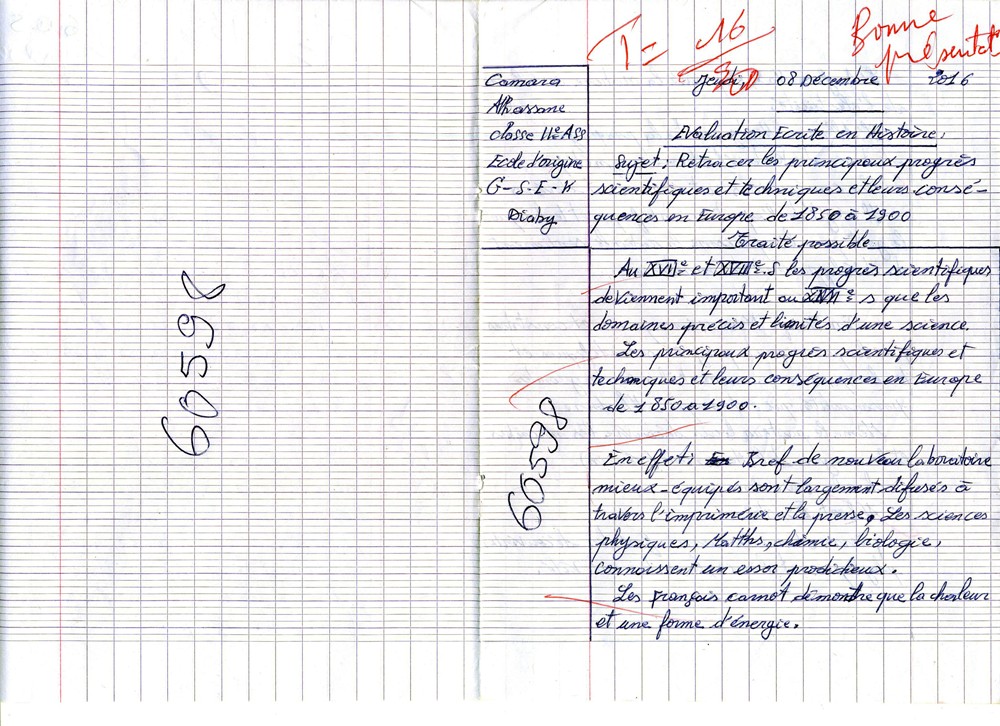 T = 16/20
Bonne
présentat
Camara
Alhassane
classe 11e A SS
Ecole d'origine
G-S-E-K
Diaby
Jeudi, 08 Décembre 2016
Evaluation Ecrite en Histoire,
Sujet: Retracer les principaux progrès
scientifiques et techniques et leurs consé-
quences en Europe de 1850 à 1900
Traité possible
Au XVIe et XVIIe.S les progrès scientifiques
deviennent important au XVIIe s que les
domaines précis et limités d'une science.
Les principaux progrès scientifiques et
techniques et leurs conséquences en Europe
de 1850 a 1900.
En effet: Bref de nouveau laboratoire
mieux-équipés sont largement difusés à
travers l'imprimérie et la presse. Les sciences
physiques, Matths, chimie, biologie,
connaissent un essor prodidieux.
Les français carnot démontre que la chaleur
et une forme d'énergie.
60598
60598